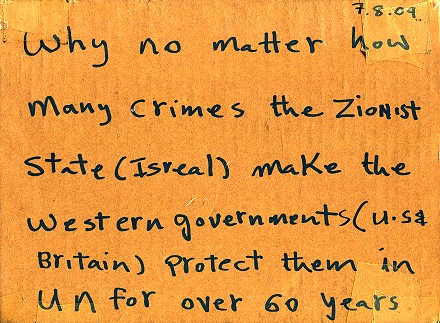 7.8.09
Why no matter how
many crimes the Zionist
State (Isreal) make the
western governments (U.S &
Britain) protect them in
UN for over 60 years